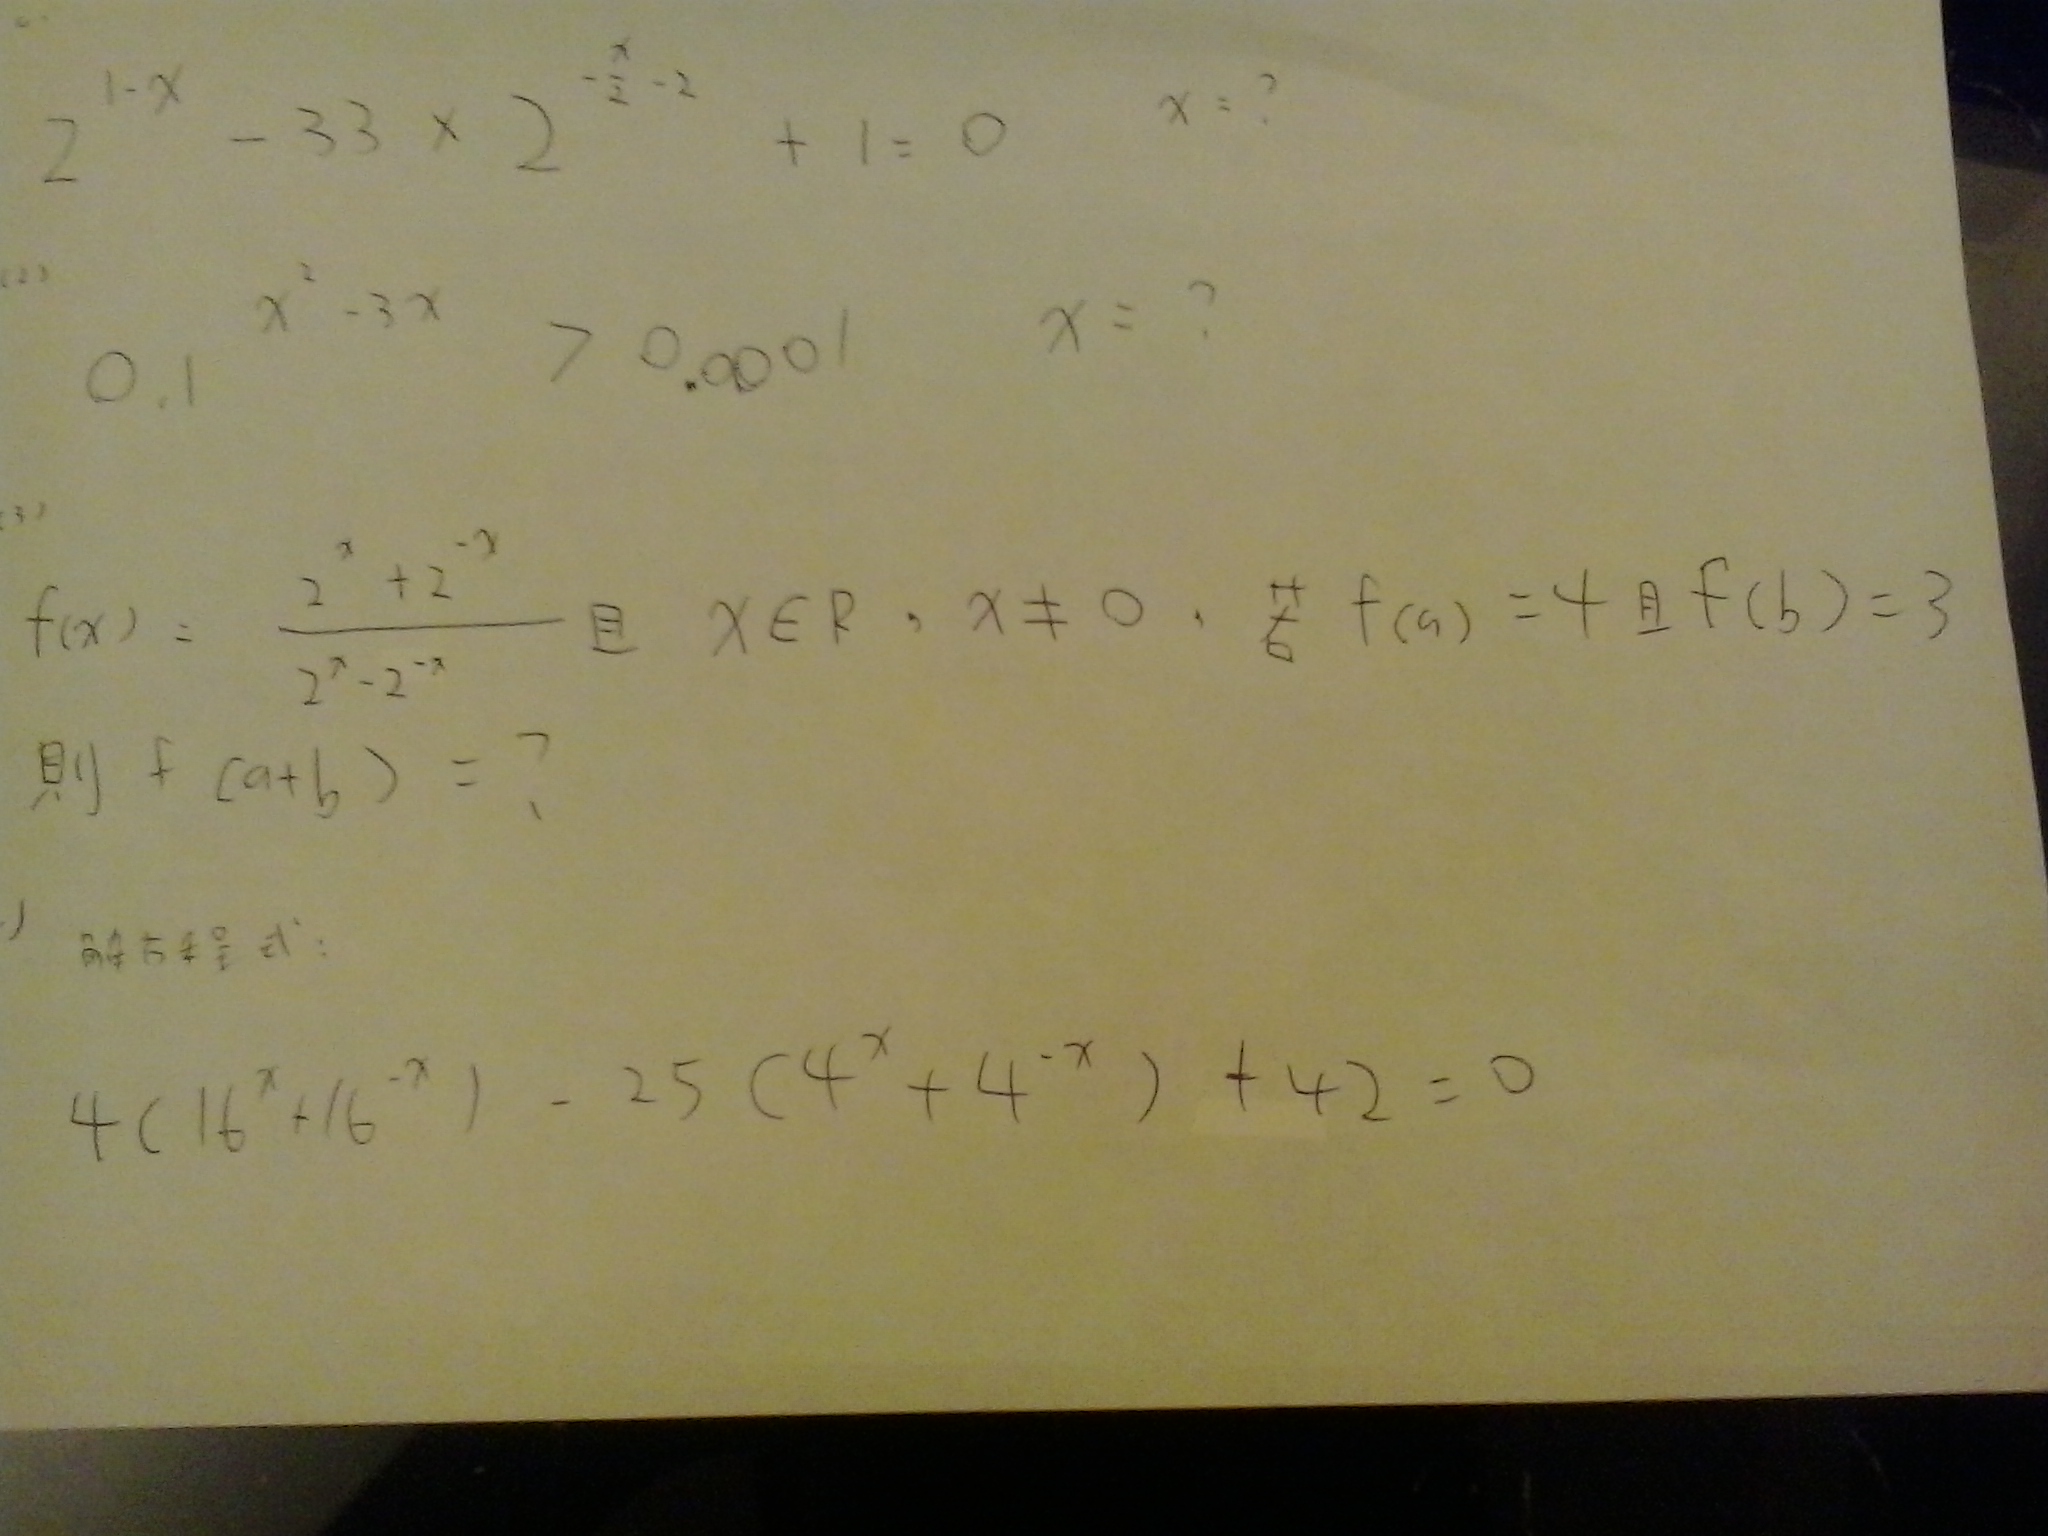 2^(1-x) - 33 × 2^(-x/2 -2) + 1 = 0 x = ?
(2)
0.1^(x²-3x) > 0.0001 x = ?
(3)
f(x) = (2^x + 2^-x)/(2^x - 2^-x) 且 x∈R , x≠0 , 若 f(a) = 4 且 f(b) = 3
則 f(a+b) = ?
解方程式:
4(16^x + 16^-x) - 25(4^x + 4^-x) + 42 = 0